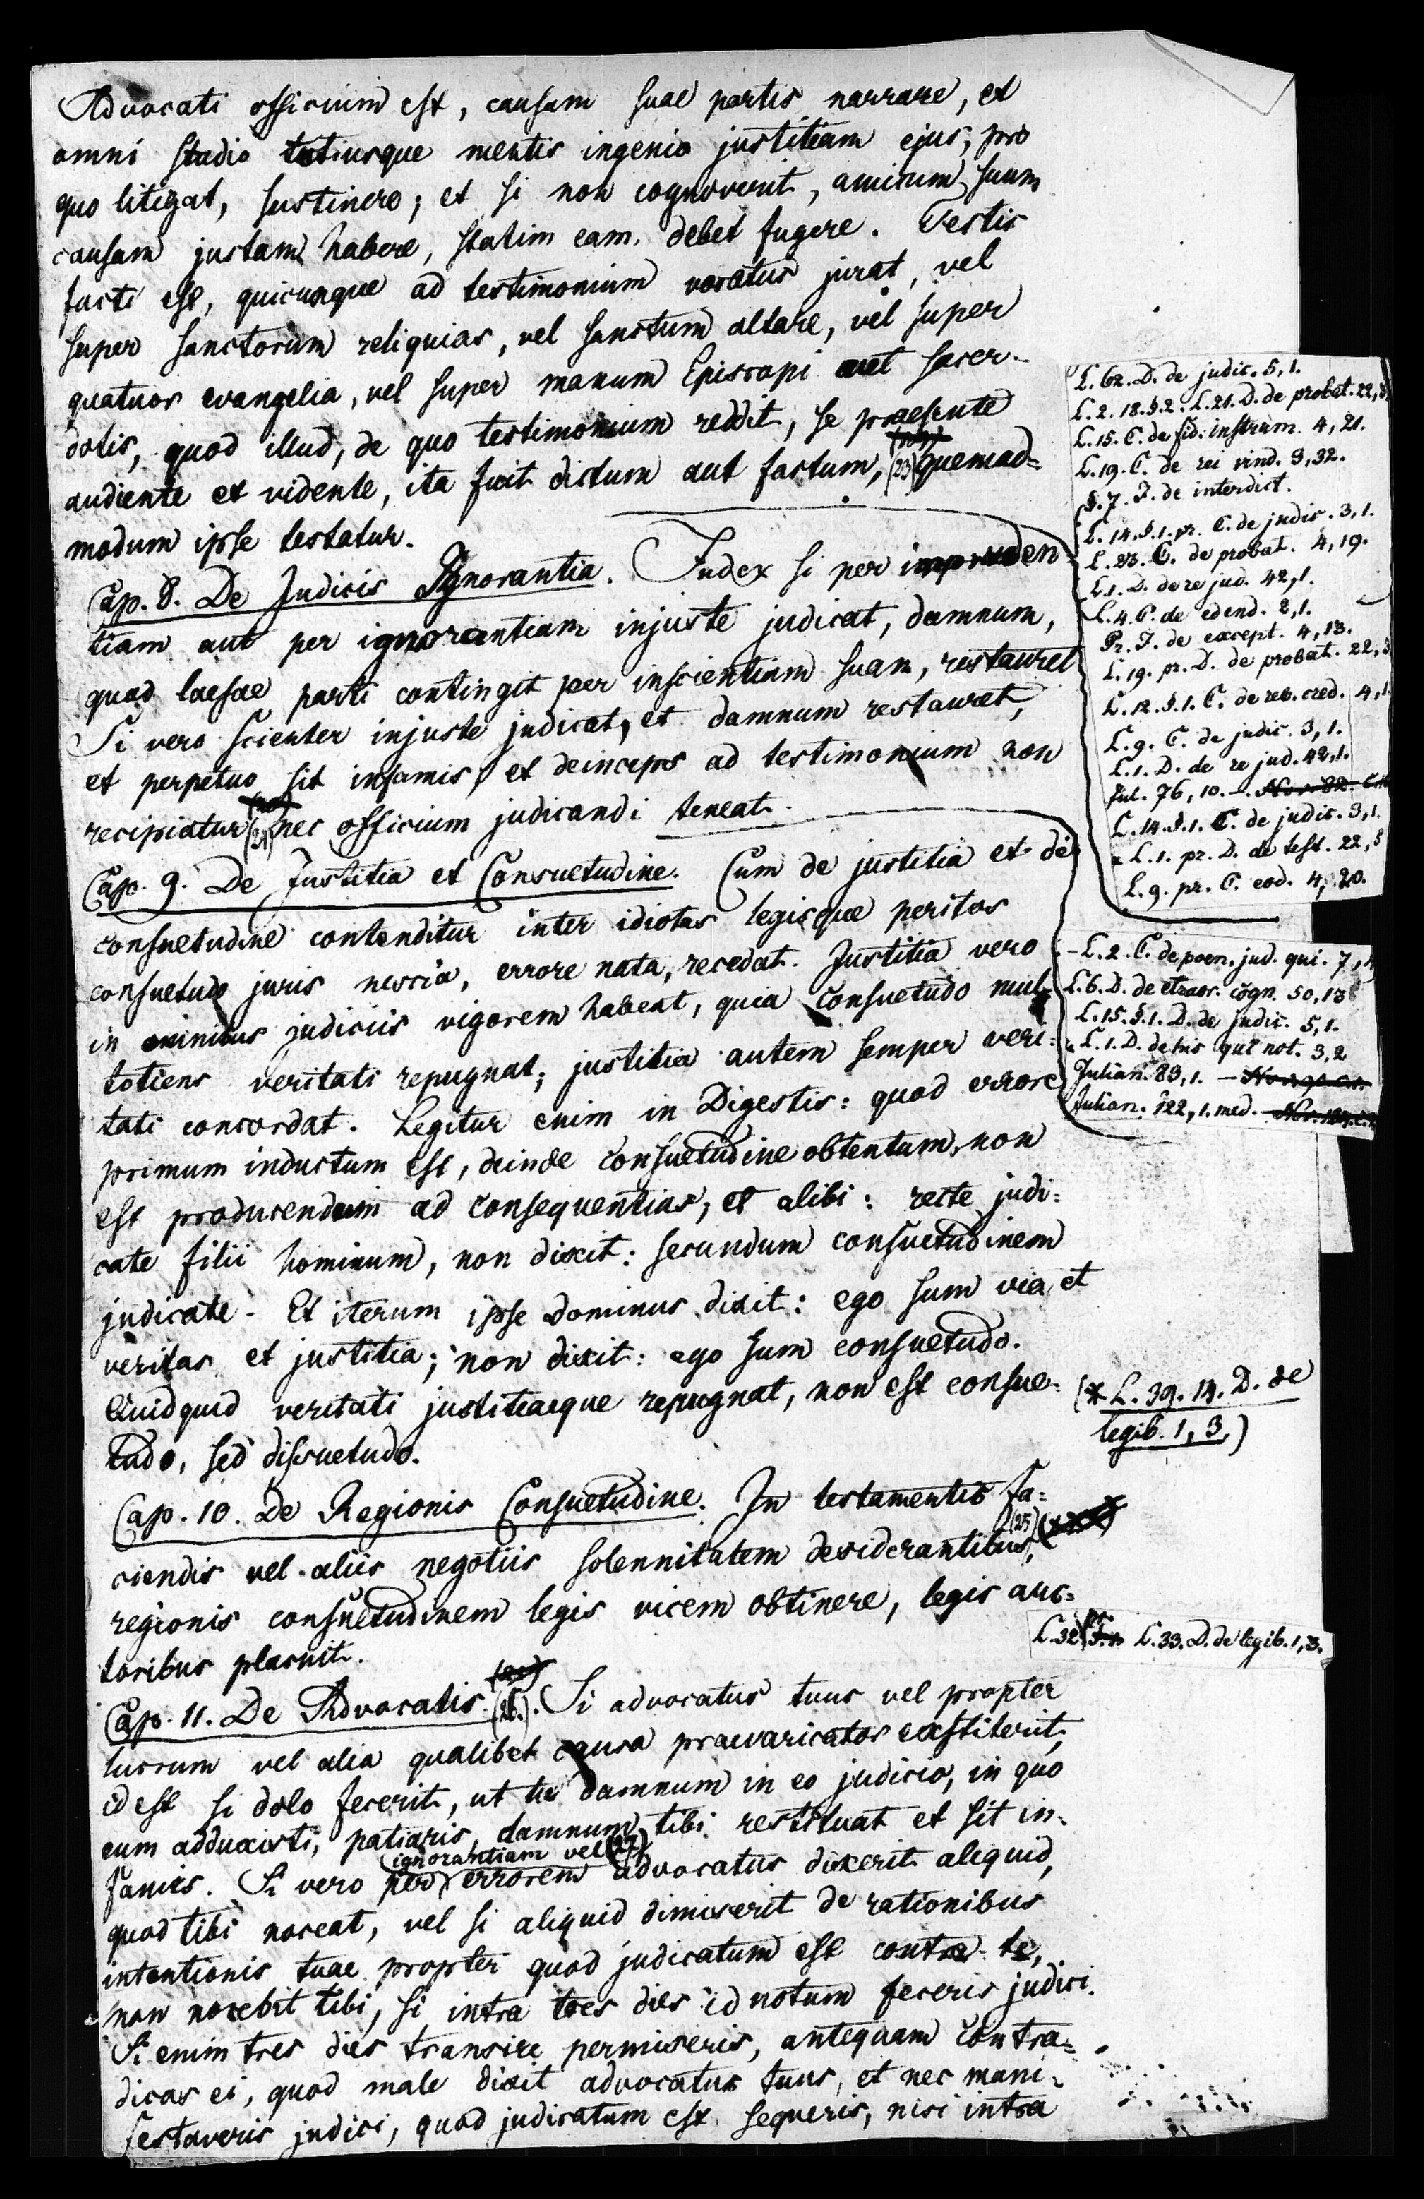 Advocati officium est, causam suae partis narrare, et
omni studio totiusque mentis ingenio justitiam ejus, pro
quo litigat, sustinere; et si non cognoverit, amicum suum
causam justam habere, statim eam debet fugere. Testis
facti est, quicunque ad testimonium vocatus jurat, vel
super sanctorum reliquias, vel sanctum altare, vel super
quatuor evangelia, vel super manum Episcopi vel sacer-
dotis, quod illud, de quo testimonium reddit, se praesente
audiente et vidente, ita fuit dictum aut factum, (23) quemad-
modum ipse testatur.
Cap. 8. De Judicis Ignorantia. Judex si per impruden-
tiam aut per ignorantiam injuste judicat, damnum,
quod laesae parti contingit per inscientiam suam, restauret
Si vero scienter injuste judicat, et damnum restauret,
et perpetuo sit infamis, et deinceps ad testimonium non
recipiatur (24) nec officium judicandi teneat.
Cap. 9. De Justitia et Consuetudine. Cum de justitia et de
consuetudine contenditur inter idiotas legisque peritos
consuetudo juris nescia, errore nata, recedat. Justitia vero
in omnibus judiciis vigorem habeat, quia consuetudo mul-
totiens veritati repugnat; justitia autem semper veri-
tati concordat. Legitur enim in Digestis: quod errore
primum inductum est, deinde consuetudine obtentum, non
est producendum ad consequentias, et alibi: recte judi-
cate filii hominum, non dixit: secundum consuetudinem
judicate. Et iterum ipse Dominus dixit: ego sum via, et
veritas et justitia; non dixit: ego sum consuetudo.
Quidquid veritati justitiaeque repugnat, non est consue-
tudo, sed dissuetudo.
Cap. 10. De Regionis Consuetudine. In testamentis fa-
ciendis vel aliis negotiis solennitatem desiderantibus, (25)
regionis consuetudinem legis vicem obtinere, legis auc-
toribus placuit.
Cap. 11. De Advocatis. (26). Si advocatus tuus vel propter
lucrum vel alia qualibet causa praevaricator exstiterit,
id est si dolo fecerit, ut tu damnum in eo judicio, in quo
eum adduxisti, patiaris, damnum tibi restituat et sit in-
famis. Si vero per ignorantiam vel (27) errorem advocatus dixerit aliquid,
quod tibi noceat, vel si aliquid dimiserit de rationibus
intentionis tuae propter quod judicatum est contra te,
non nocebit tibi, si intra tres dies id notum feceris judici.
Si enim tres dies transire permiseris, antequam contra-
dicas ei, quod male dixit advocatus tuus, et nec mani-
festaveris judici, quod judicatum est sequeris, nisi intra
L. 62. D. de judic. 5, 1.
L. 2. 18. §. 2. L. 21. D. de probat. 22,
L. 15. C. de fid. instrum. 4, 21.
L. 19. C. de rei vind. 3, 32.
§. 7. I. de interdict.
L. 14. §. 1. pr. C. de judic. 3, 1.
L. 23. C. de probat. 4, 19.
L. 1. D. de re jud. 42, 1.
L. 4. C. de edend. 2, 1.
Pr. I. de except. 4, 13.
L. 19. pr. D. de probat. 22, 3
L. 12. §. 1. C. de reb. cred. 4, 1
L. 9. C. de judic. 3, 1.
L. 1. D. de re jud. 42, 1.
Jul. 76, 10. -
L. 14. §. 1. C. de judic. 3, 1.
L. 1. pr. D. de test. 22, 5
L. 9. pr. C. eod. 4, 20.
- L. 2. C. de poen. jud. qui. 7,
L. 6. D. de extraor. cogn. 50, 13
L. 15. §. 1. D. de judic. 5, 1.
L. 1. D. de his qui not. 3, 2
Julian. 83, 1. -
Julian. 122, 1. med.
(* L. 39. 14. D. de
legib. 1, 3.)
L. 32. pr. L. 33. D. de legib. 1, 3.